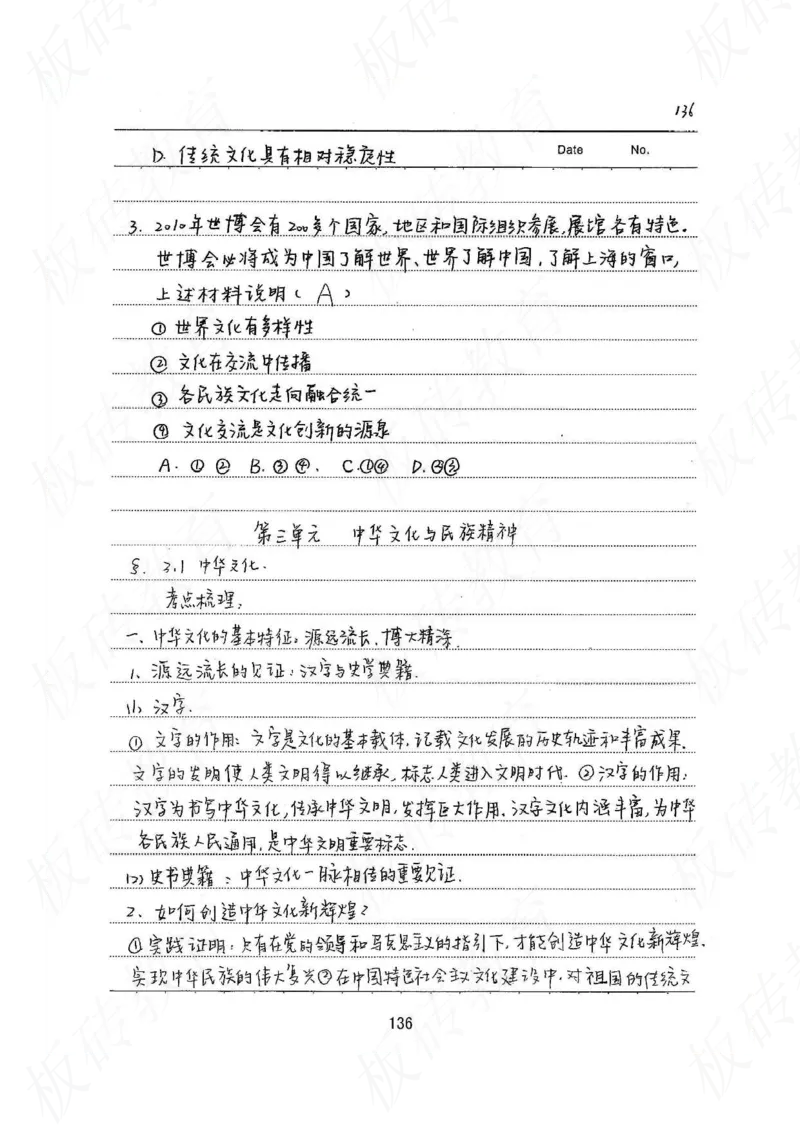 136
Date No.
D. 传统文化具有相对稳定性
3. 2010年世博会有200多个国家,地区和国际组织参展,展馆各有特色。
世博会必将成为中国了解世界、世界了解中国,了解上海的窗口,
上述材料说明( A )
① 世界文化有多样性
② 文化在交流中传播
③ 各民族文化走向融合统一
④ 文化交流是文化创新的源泉
A. ① ② B. ③ ④. C. ①④ D. ②③
第三单元 中华文化与民族精神
§. 3.1 中华文化.
考点梳理:
一、中华文化的基本特征:源远流长、博大精深.
1、源远流长的见证:汉字与史学典籍.
(1) 汉字.
① 文字的作用:文字是文化的基本载体,记载文化发展的历史轨迹和丰富成果.
文字的发明使人类文明得以继承,标志人类进入文明时代. ②汉字的作用:
汉字为书写中华文化,传承中华文明,发挥巨大作用.汉字文化内涵丰富,为中华
各民族人民通用,是中华文明重要标志.
(2) 史书典籍:中华文化一脉相传的重要见证.
2、如何创造中华文化新辉煌?
①实践证明:只有在党的领导和马克思主义的指引下,才能创造中华文化新辉煌.
实现中华民族的伟大复兴②在中国特色社会主义文化建设中.对祖国的传统文
136
板砖教育
板砖教育
板砖教育
板砖教育
板砖教育
板砖教育